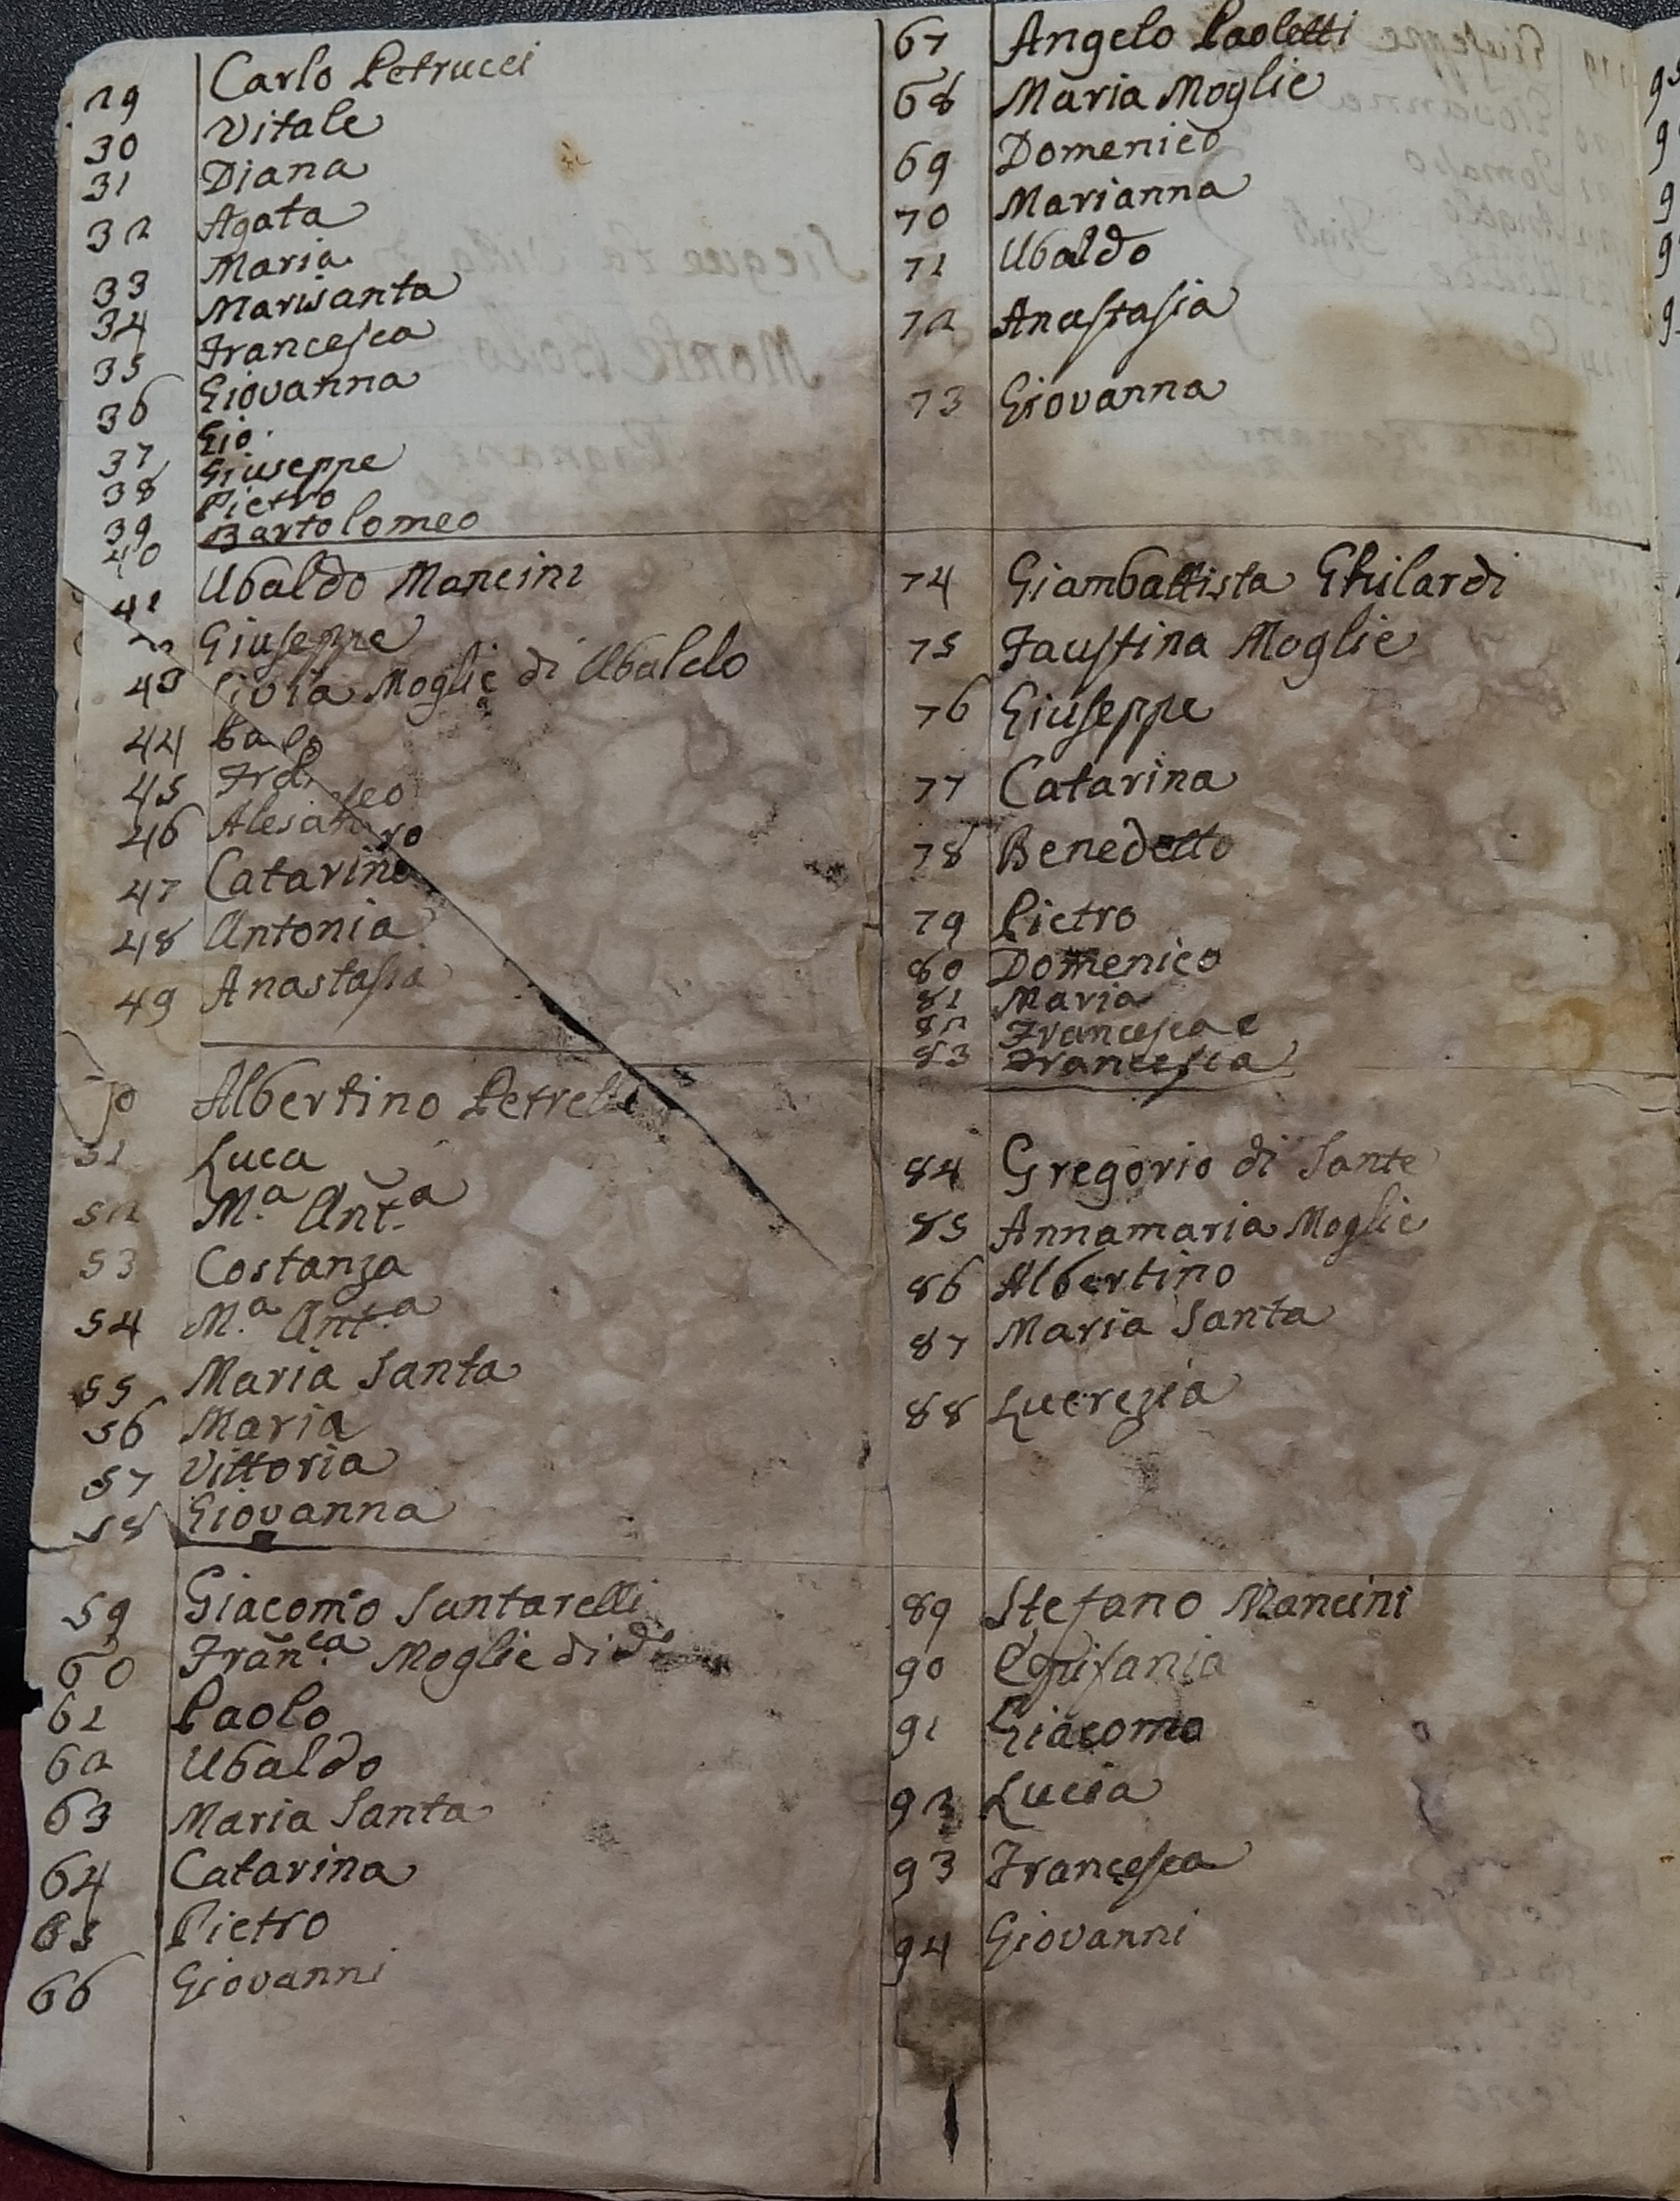 29 Carlo Petrucci
30 Vitale
31 Diana
32 Agata
33 Maria
34 Marisanta
35 Francesca
36 Giovanna
37 Gio.
38 Giuseppe
39 Pietro
40 Bartolomeo
41 Ubaldo Mancini
Giuseppe
43 Moglie di Ubaldo
44
45
46
47 Catarina
48 Antonia
49 Anastasia
50 Albertino Petrelli
51 Luca
52 M.a Ant.a
53 Costanza
54 M.a Ant.a
55 Maria Santa
56 Maria
57 Vittoria
58 Giovanna
59 Giacomo Santarelli
60 Fran.ca Moglie di do
61 Paolo
62 Ubaldo
63 Maria Santa
64 Catarina
65 Pietro
66 Giovanni
67 Angelo Paoletti
68 Maria Moglie
69 Domenico
70 Marianna
71 Ubaldo
72 Anastasia
73 Giovanna
74 Giambattista Ghilardi
75 Faustina Moglie
76 Giuseppe
77 Catarina
78 Benedetto
79 Pietro
80 Domenico
81 Maria
82 Francesca e
83 Francesca
84 Gregorio di Sante
85 Annamaria Moglie
86 Albertino
87 Maria Santa
88 Lucrezia
89 Stefano Mancini
90 Epifania
91 Giacomo
92 Lucia
93 Francesca
94 Giovanni